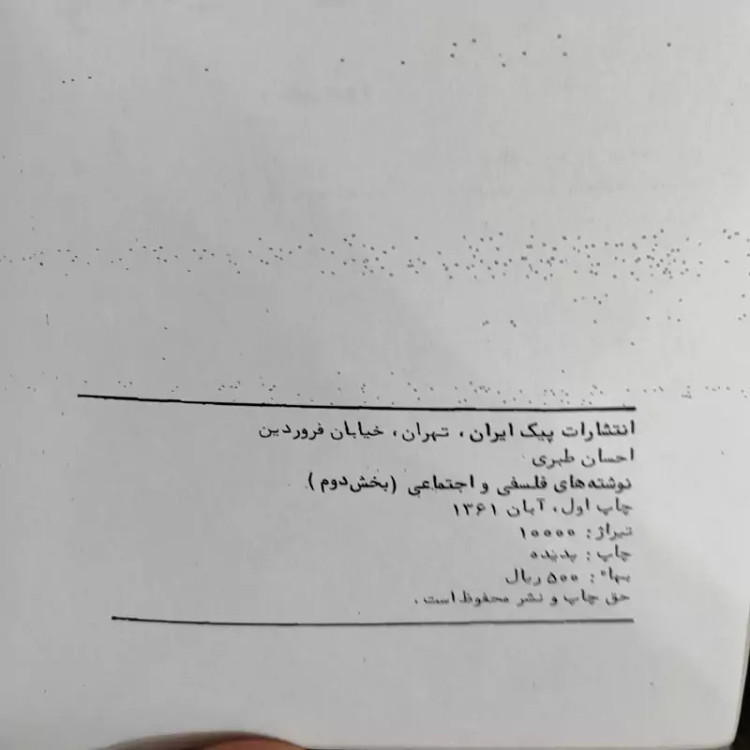 انتشارات پیک ایران، تهران، خیابان فروردین
احسان طبری
نوشته‌های فلسفی و اجتماعی (بخش دوم)
چاپ اول، آبان ۱۳۶۱
تیراژ: ۱۰۰۰۰
چاپ: پدیده
بهاء: ۵۰۰ ریال
حق چاپ و نشر محفوظ است.